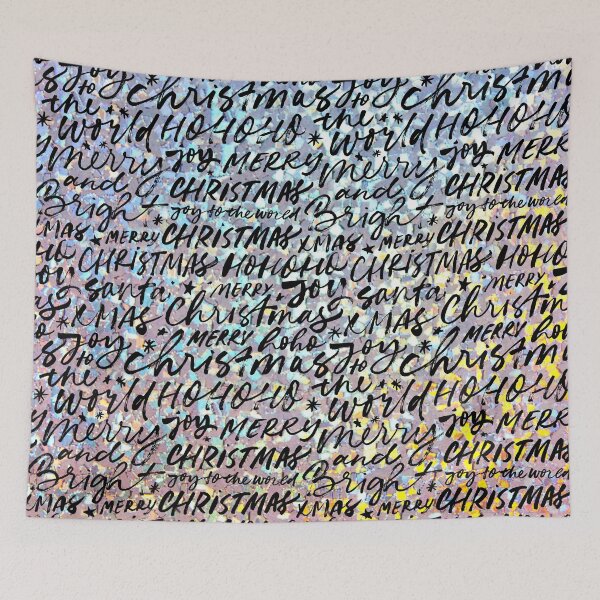 Joy christmas Joy christmas
the to the to
world HO HO HO world HO HO HO
merry Joy MERRY merry Joy MERRY
and CHRISTMAS and CHRISTMAS
Bright joy to the world Bright joy to the world
XMAS MERRY CHRISTMAS XMAS MERRY CHRISTMAS
CHRISTMAS HOHOHO CHRISTMAS HOHOHO
santa MERRY Joy santa MERRY
XMAS Christmas XMAS Christmas
MERRY hoho MERRY hoho
Joy to christmas Joy to christmas
the world HO HO HO the world HO HO HO
merry Joy MERRY merry Joy MERRY
and CHRISTMAS and CHRISTMAS
Bright joy to the world Bright joy to the world
XMAS MERRY CHRISTMAS XMAS MERRY CHRISTMAS